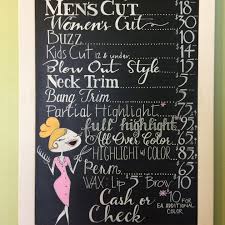 MEN'S CUT 18
Women's Cut 30
BUZZ 10
Kids Cut 12 & under
Blow Out Style
Neck Trim
Bang Trim
Partial Highlight
full highlight
All Over Color
HIGHLIGHT & COLOR
Perm
WAX: Lip 5 Brow
10 FOR
EA. ADDITIONAL
COLOR
Cash or
Check